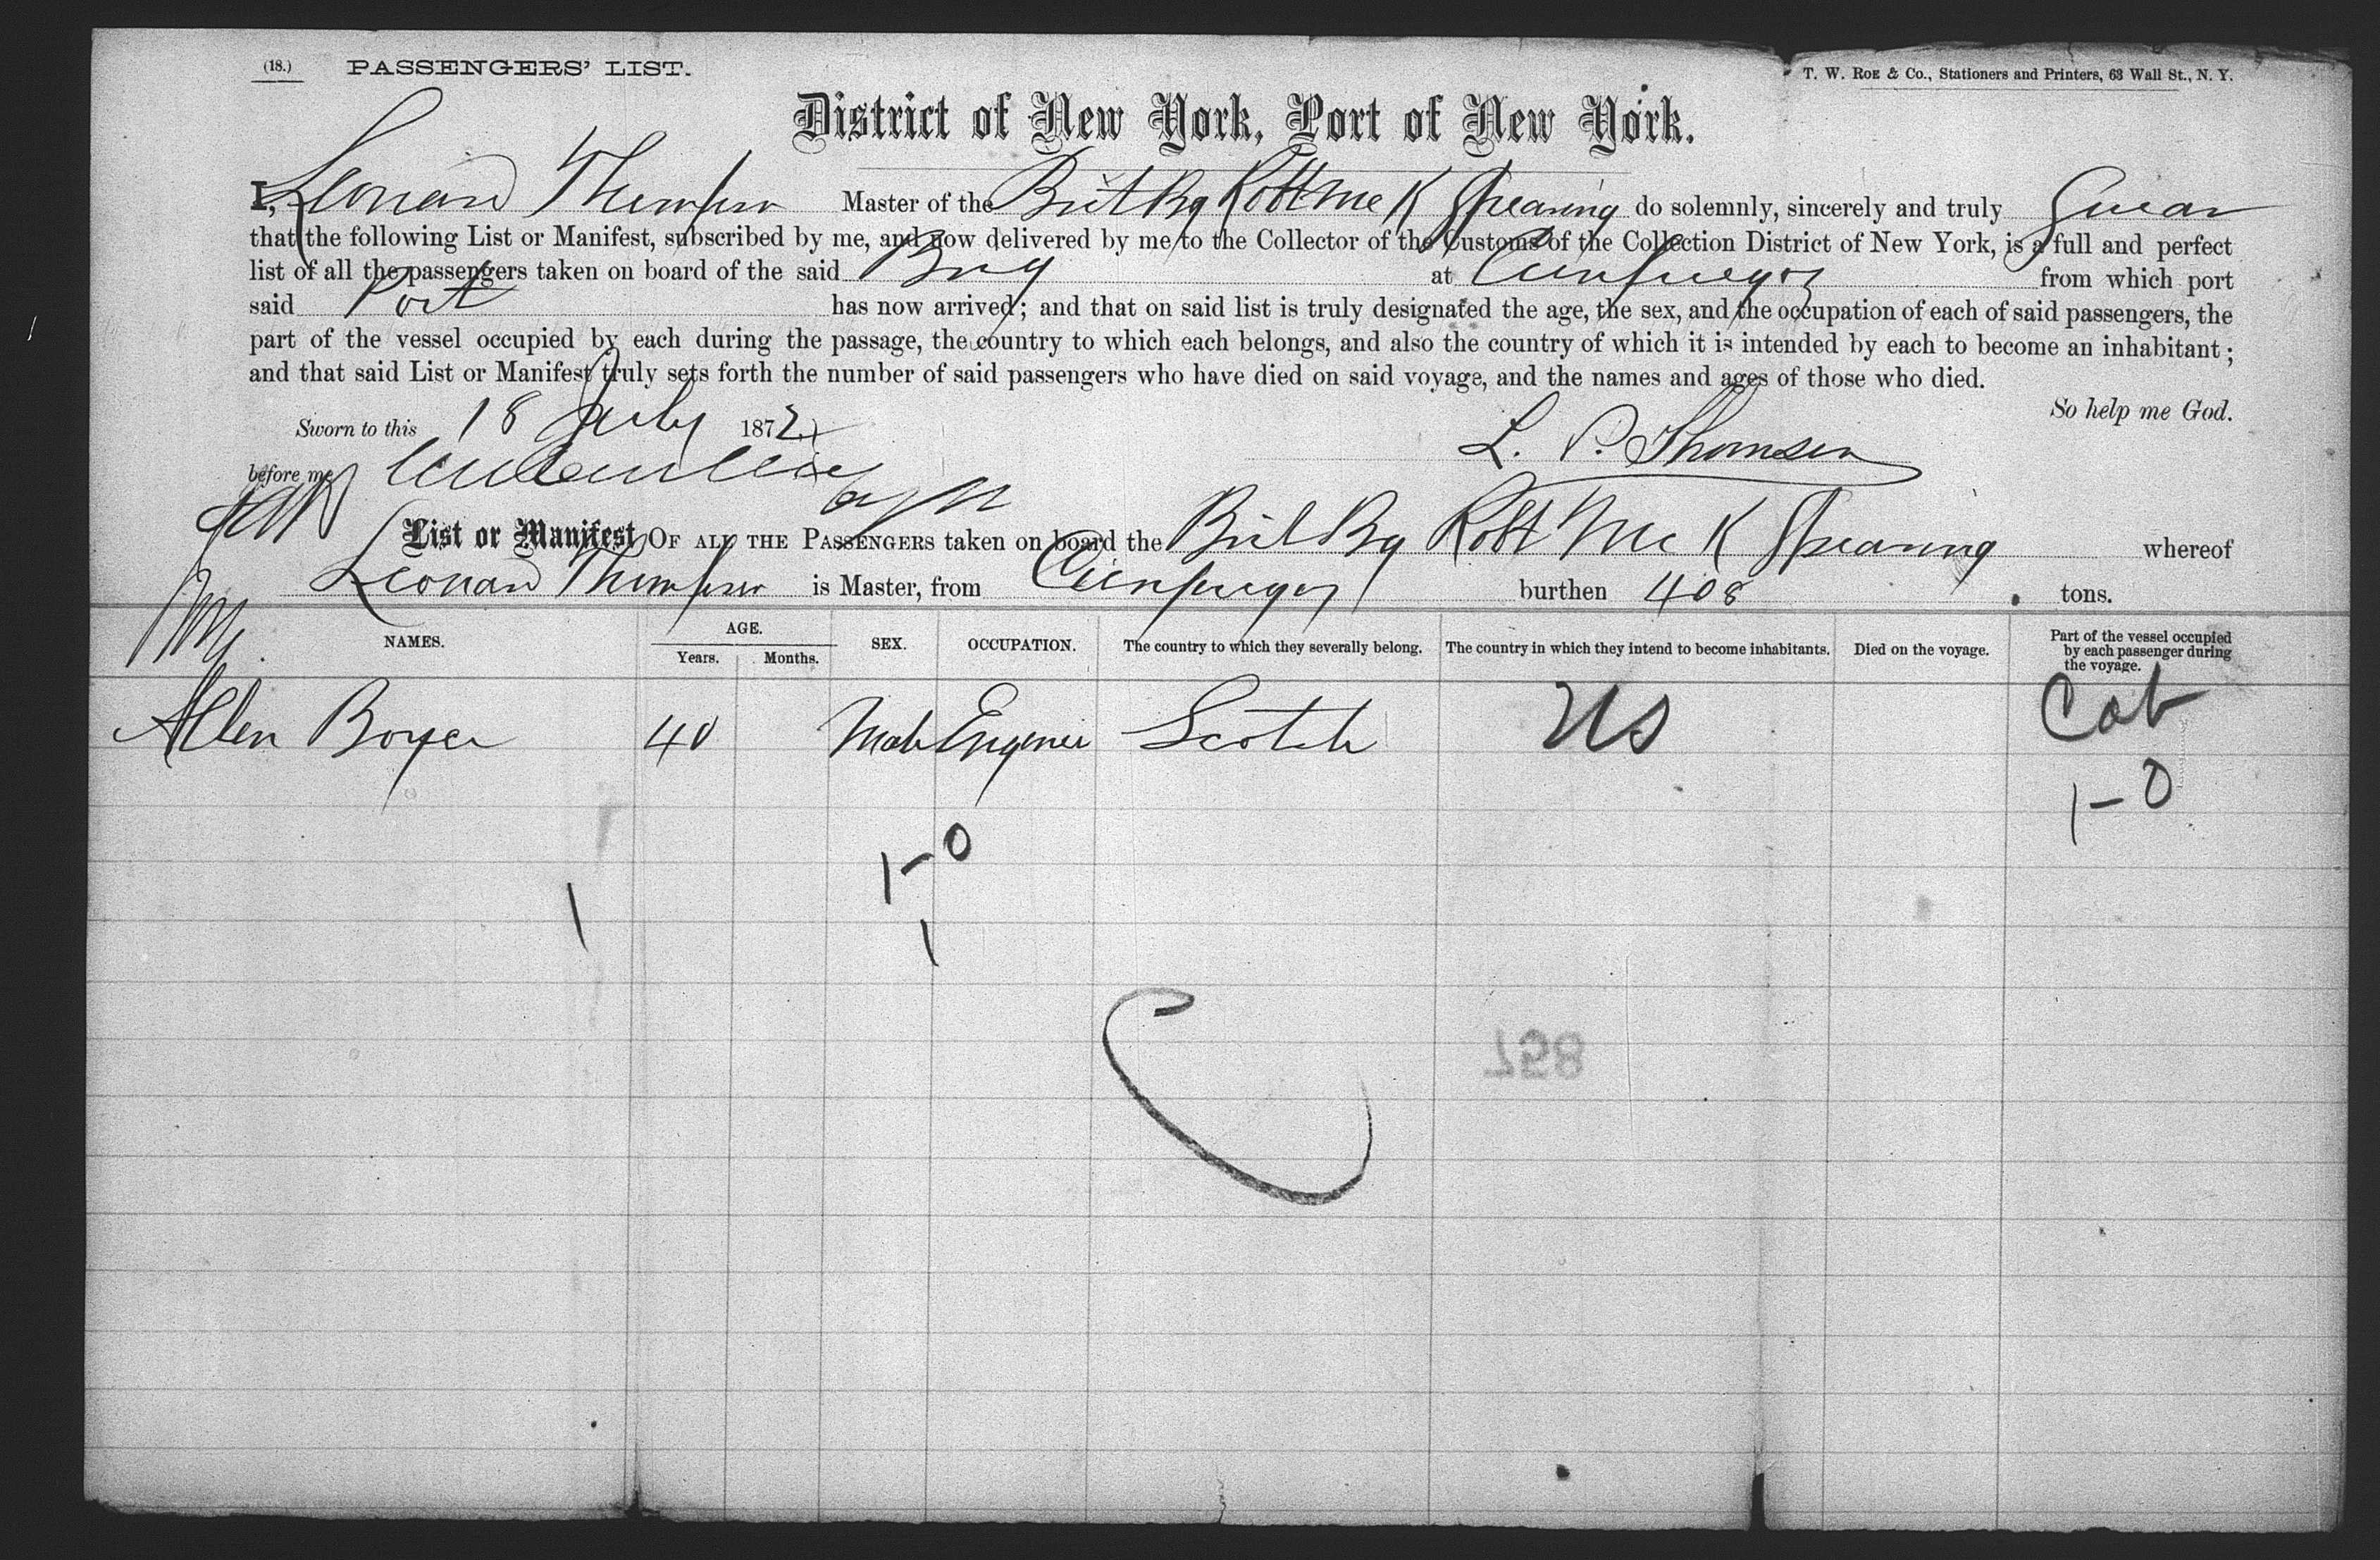 (18.) PASSENGERS' LIST. T. W. ROE & Co., Stationers and Printers, 63 Wall St., N. Y.
District of New York, Port of New York.
I, Leonard Thompson Master of the Brit Bg Robt Mc K Spearing do solemnly, sincerely and truly Swear
that the following List or Manifest, subscribed by me, and now delivered by me to the Collector of the Customs of the Collection District of New York, is a full and perfect
list of all the passengers taken on board of the said Brig at Cienfuegos from which port
said Port has now arrived; and that on said list is truly designated the age, the sex, and the occupation of each of said passengers, the
part of the vessel occupied by each during the passage, the country to which each belongs, and also the country of which it is intended by each to become an inhabitant;
and that said List or Manifest truly sets forth the number of said passengers who have died on said voyage, and the names and ages of those who died.
So help me God.
Sworn to this 18 July 1872
L. P. Thomsen
before me
List or Manifest OF ALL THE PASSENGERS taken on board the Brit Bg Robt Mc K Spearing whereof
Leonard Thompson is Master, from Cienfuegos burthen 408 tons.
NAMES. AGE. Years. Months. SEX. OCCUPATION. The country to which they severally belong. The country in which they intend to become inhabitants. Died on the voyage. Part of the vessel occupied by each passenger during the voyage.
Allen Boyer 40 Male Engineer Scotch US Cab
1-0
1-0
1 1
C
857